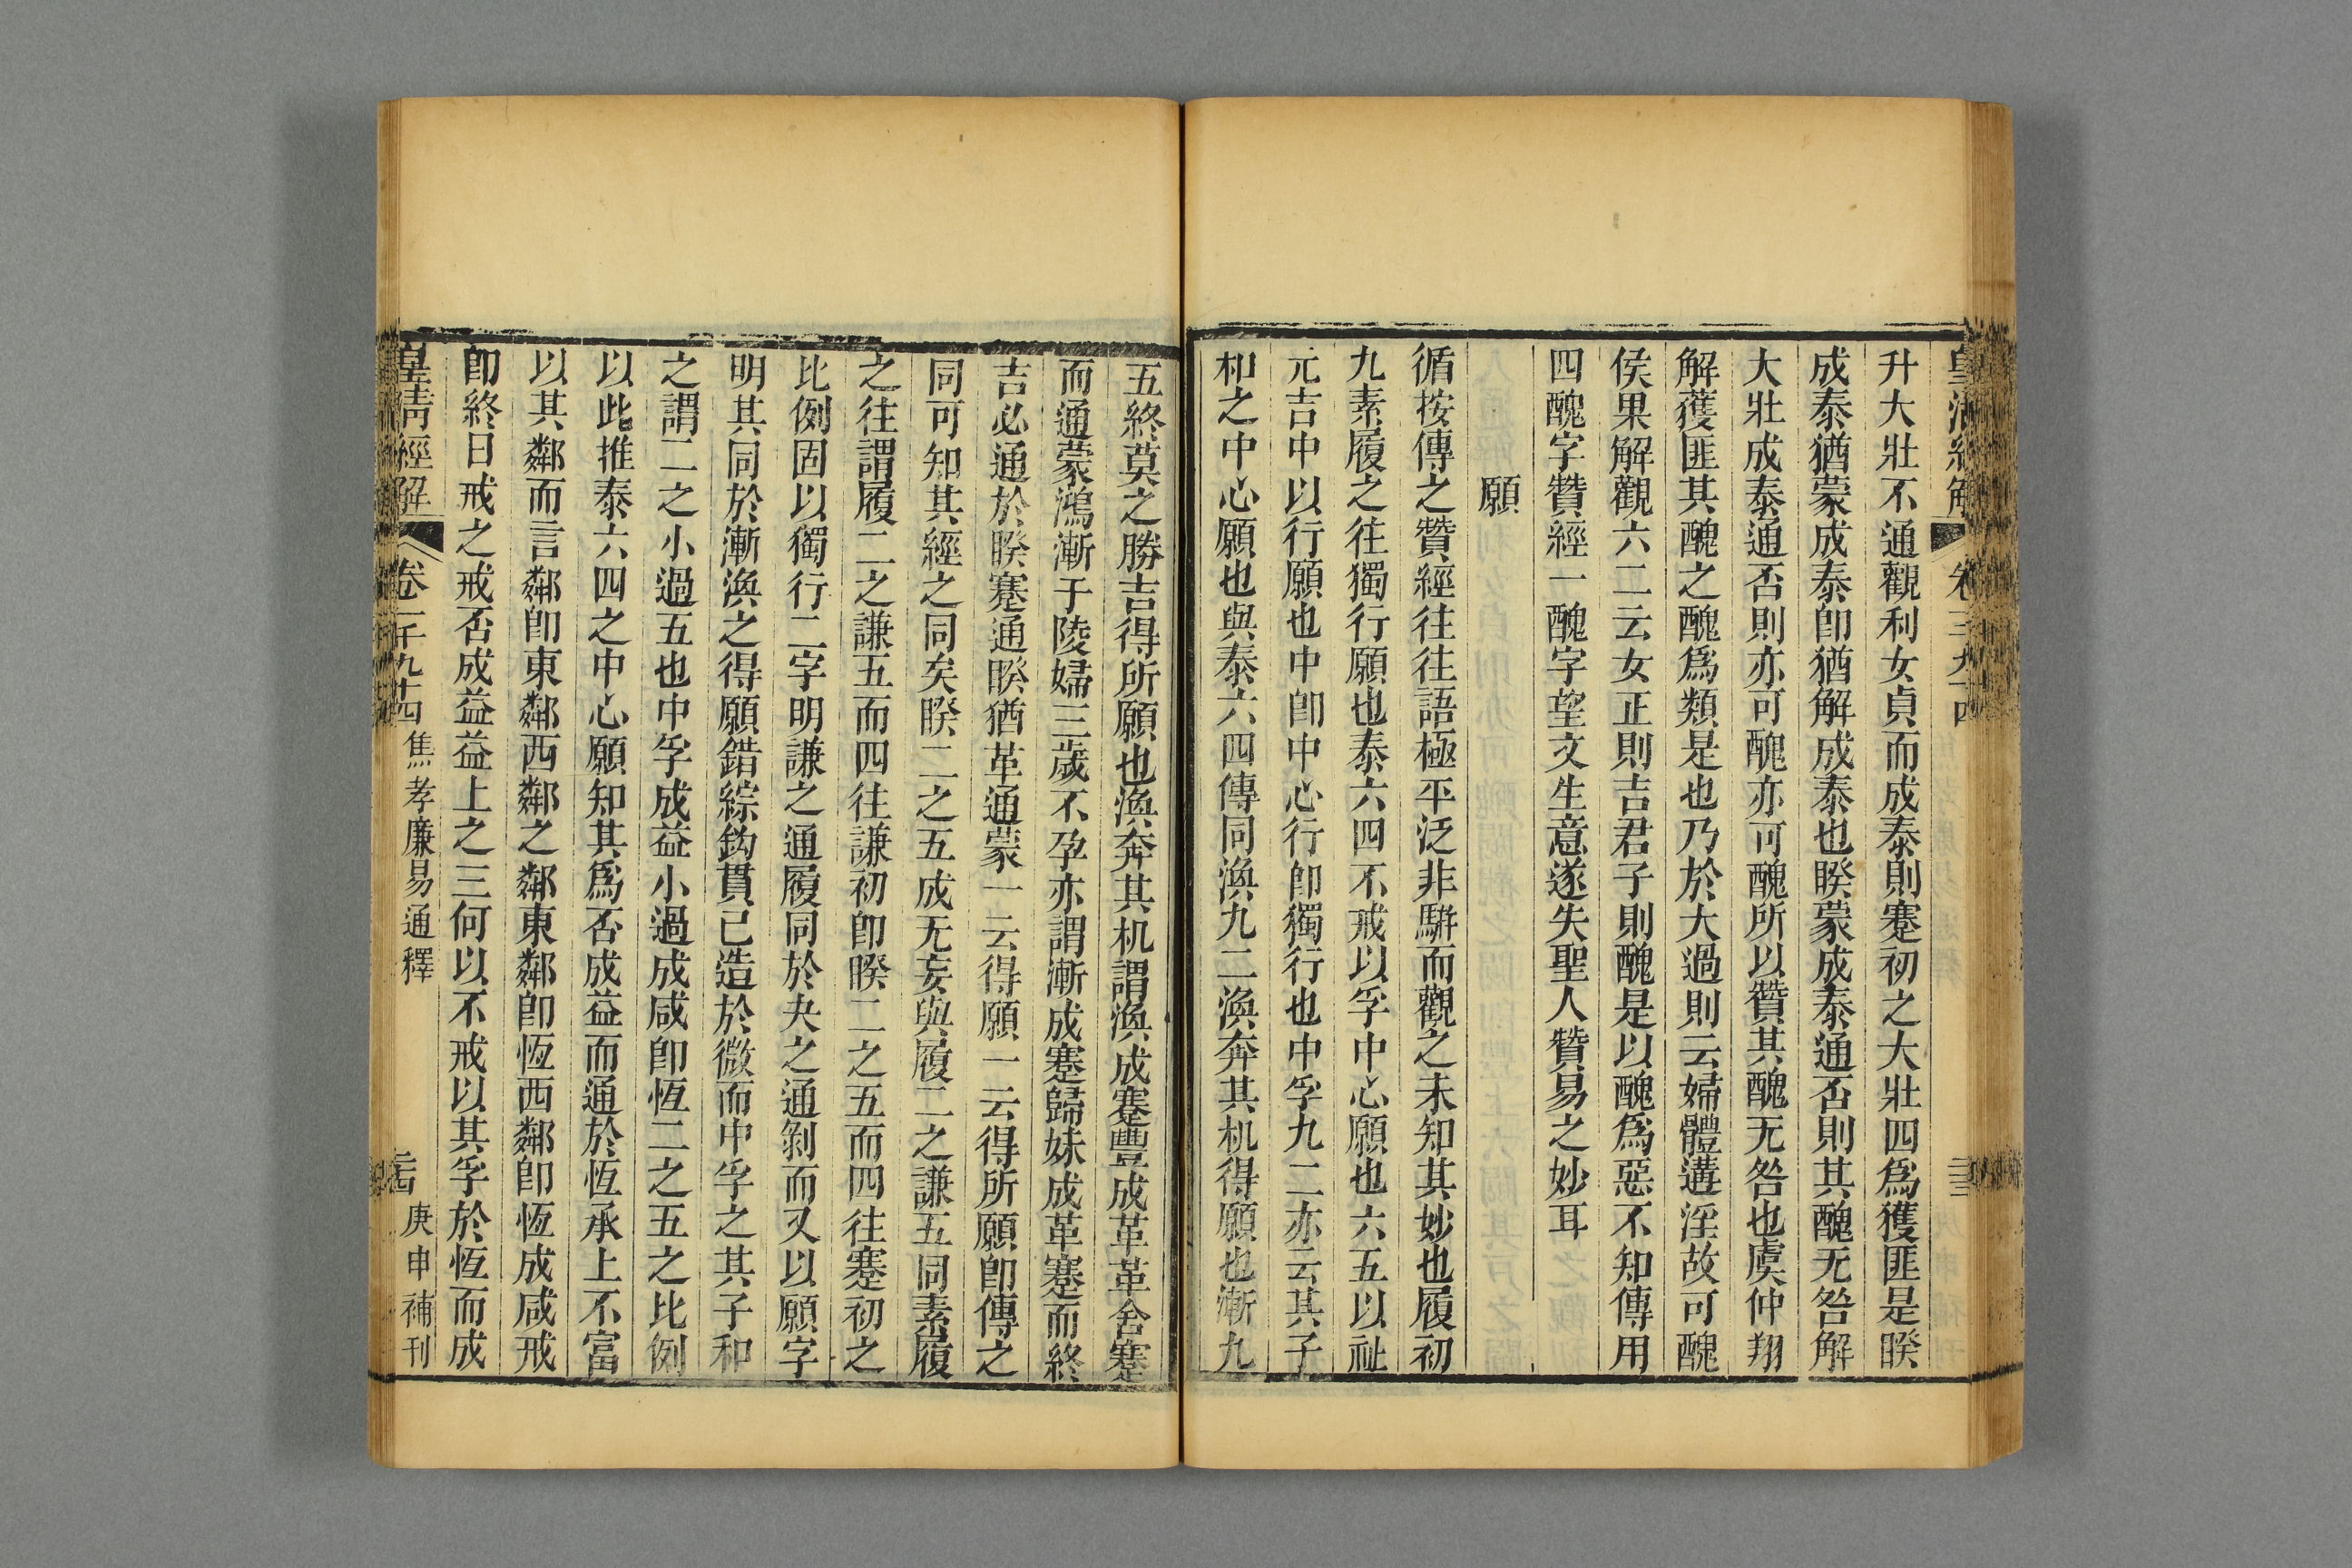 皇清經解
升大壯不通觀利女貞而成泰則蹇初之大壯四爲獲匪是睽
成泰猶蒙成泰卽猶解成泰也睽蒙成泰通否則其醜无咎解
大壯成泰通否則亦可醜亦可醜所以贊其醜无咎也虞仲翔
解獲匪其醜之醜爲類是也乃於大過則云婦體遘淫故可醜
侯果解觀六二云女正則吉君子則醜是以醜爲惡不知傳用
四醜字贊經一醜字望文生意遂失聖人贊易之妙耳
願
循按傳之贊經往往語極平泛非駢而觀之未知其妙也履初
九素履之往獨行願也泰六四不戒以孚中心願也六五以祉
元吉中以行願也中卽中心行卽獨行也中孚九二亦云其子
和之中心願也與泰六四傳同渙九二渙奔其机得願也漸九
五終莫之勝吉得所願也渙奔其机謂渙成蹇豐成革革舍蹇
而通蒙鴻漸于陵婦三歲不孕亦謂漸成蹇歸妹成革蹇而終
吉必通於睽蹇通睽猶革通蒙一云得願一云得所願卽傳之
同可知其經之同矣睽二之五成无妄與履二之謙五同素履
之往謂履二之謙五而四往謙初卽睽二之五而四往蹇初之
比例固以獨行二字明謙之通履同於夬之通剝而又以願字
明其同於漸渙之得願錯綜鉤貫已造於微而中孚之其子和
之謂二之小過五也中孚成益小過成咸卽恆二之五之比例
以此推泰六四之中心願知其爲否成益而通於恆承上不富
以其鄰而言鄰卽東鄰西鄰之鄰東鄰卽恆西鄰卽恆成咸戒
卽終日戒之戒否成益益上之三何以不戒以其孚於恆而成
皇清經解 卷一千九十四 焦孝廉易通釋 庚申補刊